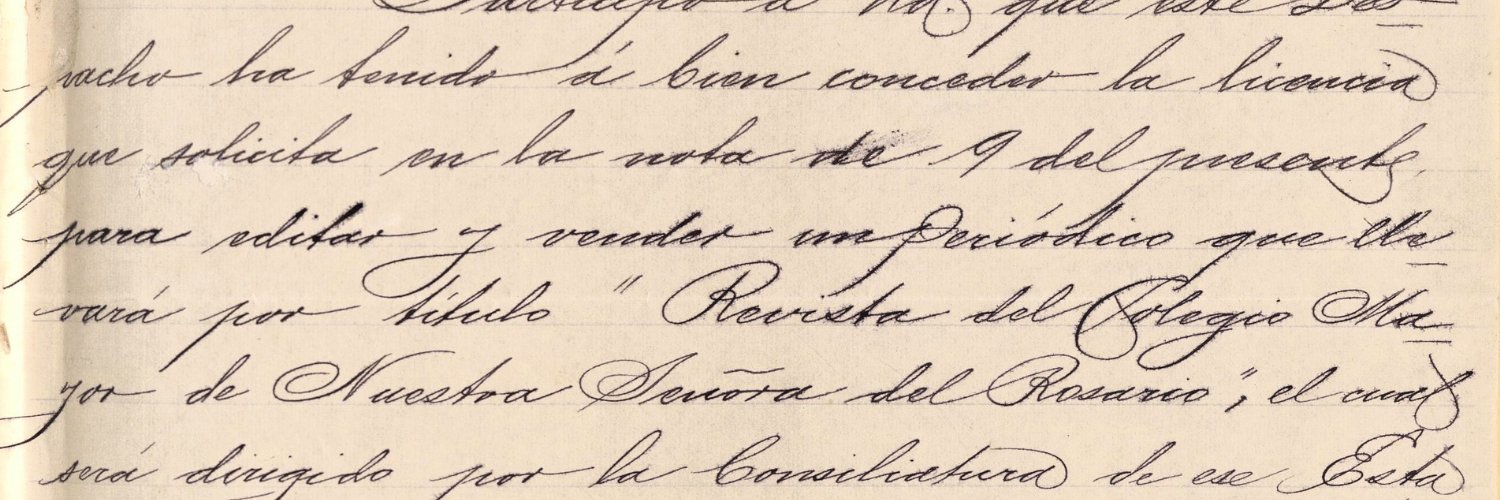 Participo á Ud. que este Des=
pacho ha tenido á bien conceder la licencia
que solicita en la nota de 9 del presente,
para editar y vender un periódico que lle=
vará por título " Revista del Colegio Ma=
yor de Nuestra Señora del Rosario", el cual
será dirigido por la Consiliatura de ese Esta